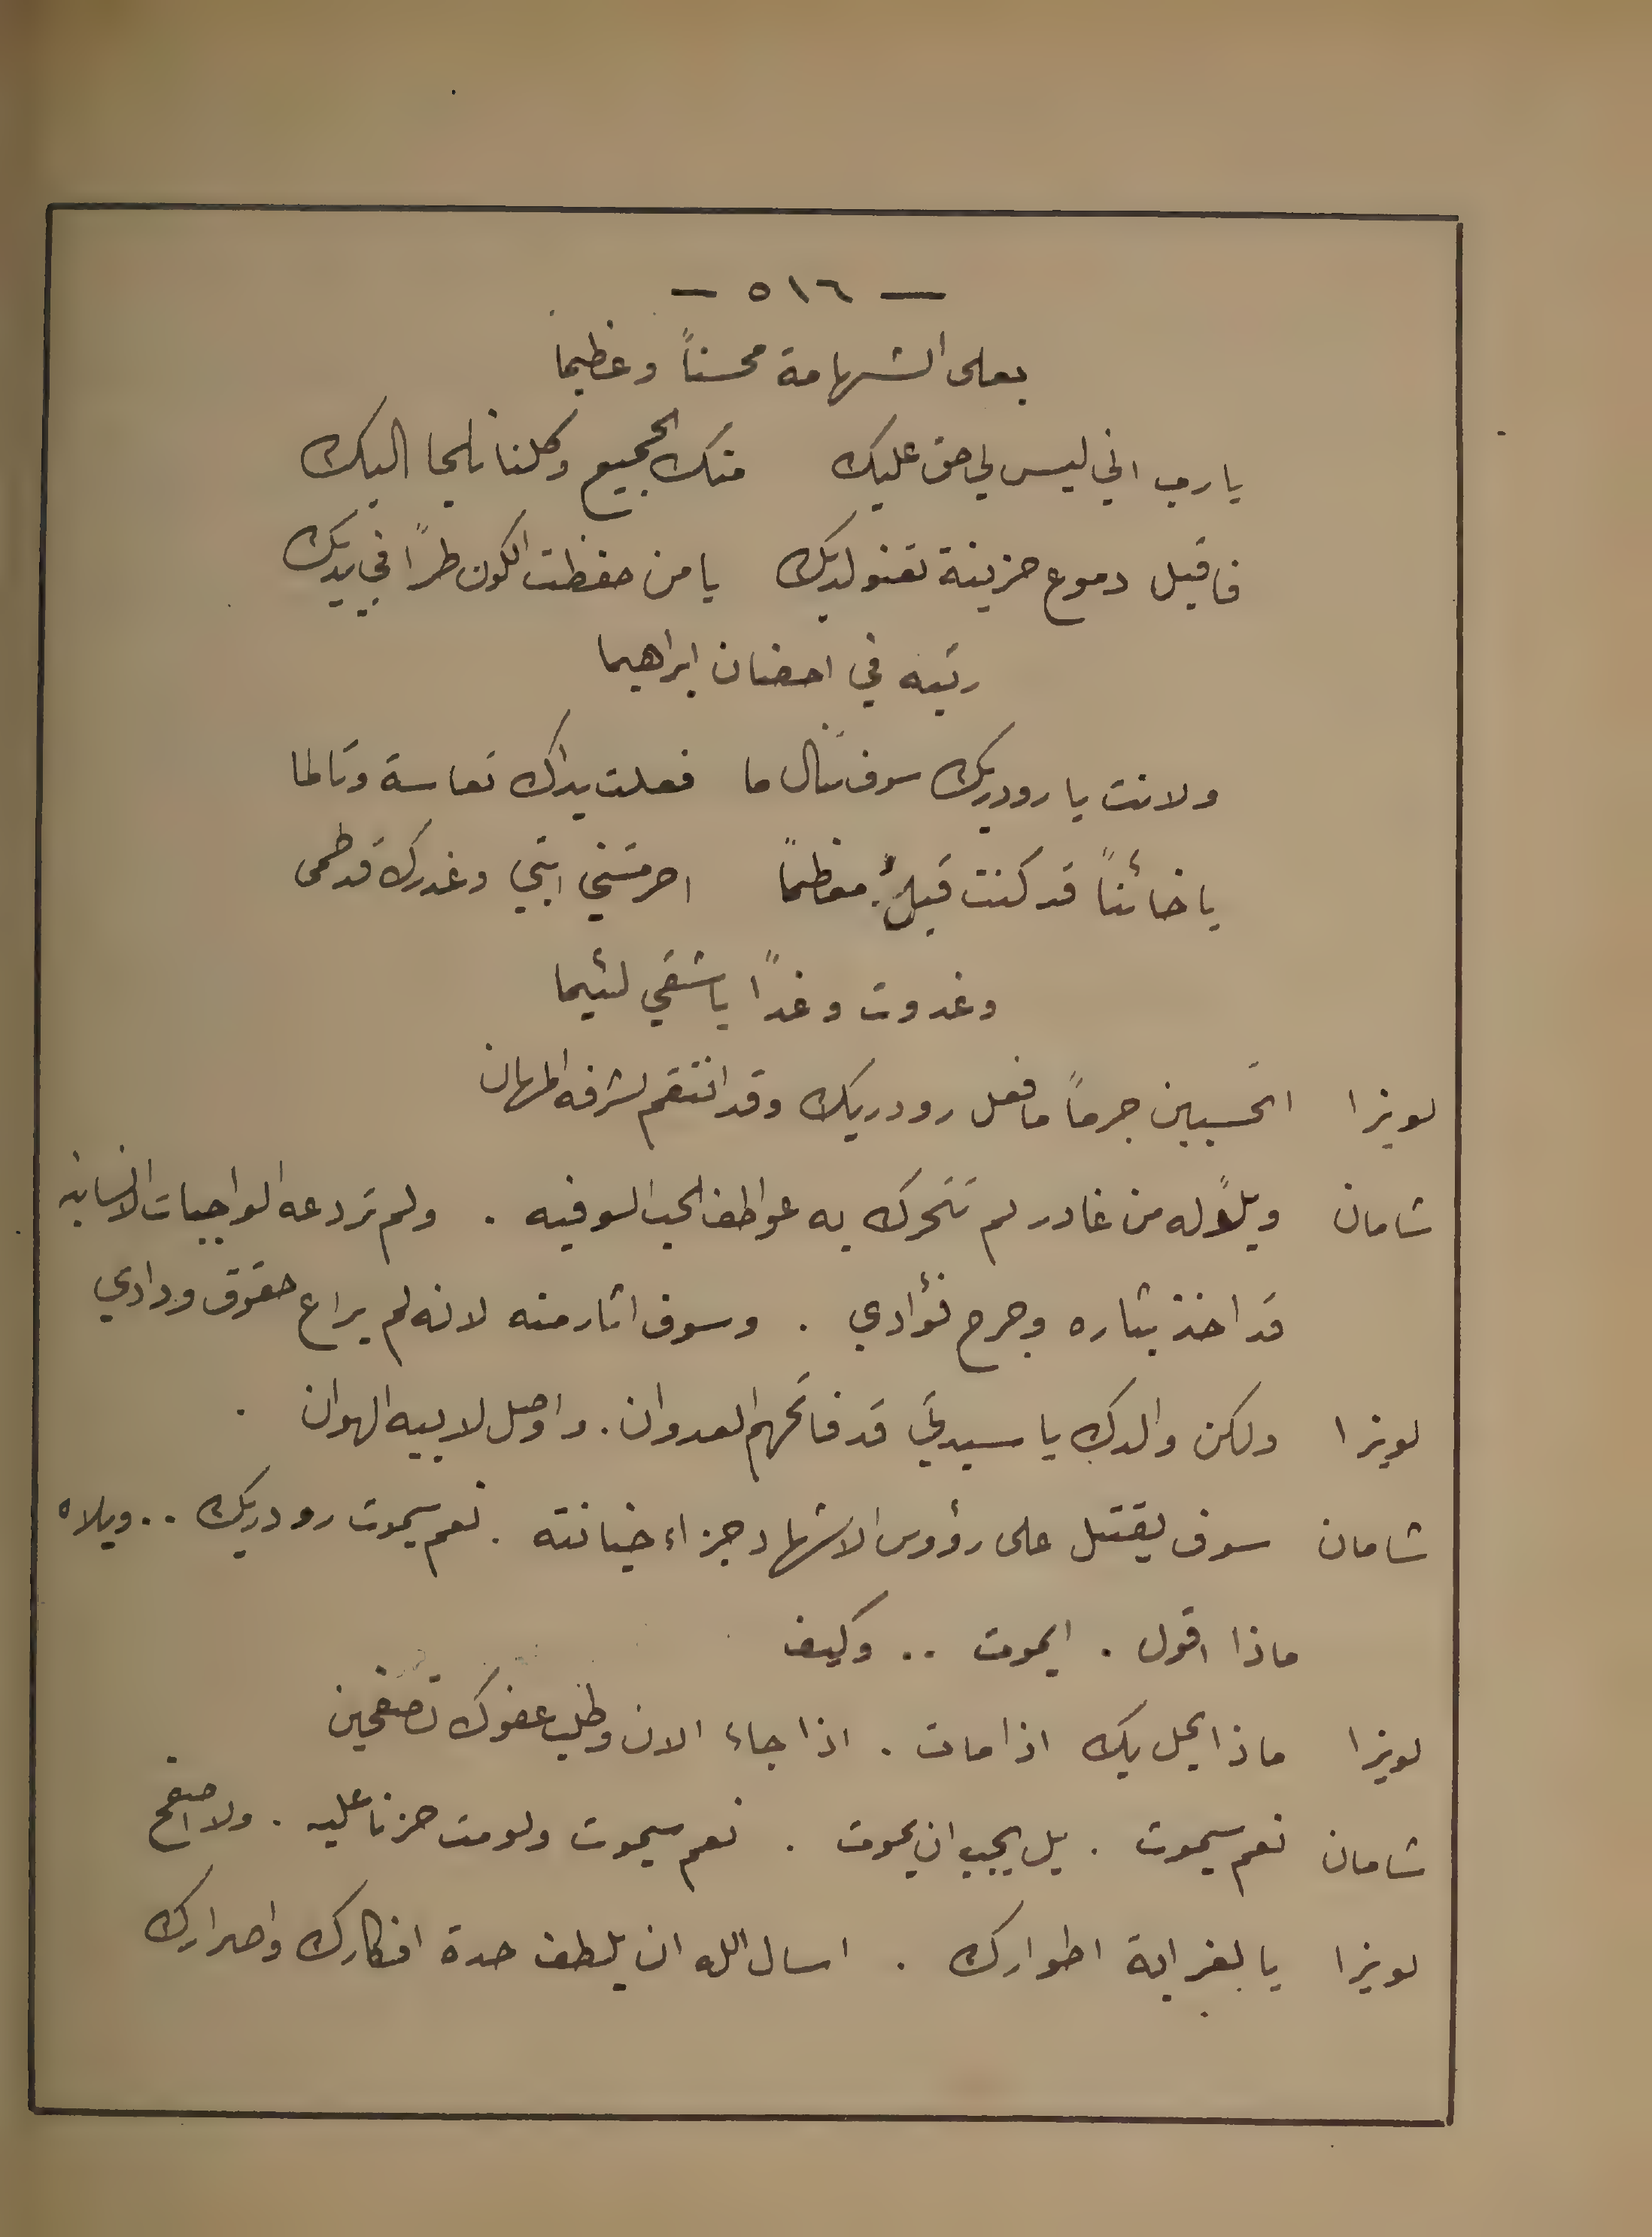 — ٥١٦ —
بعلى الشهامة محسناً وعظيما
يا رب اني ليس لي حق عليك منك الجميع وكلنا نلجا اليك
فاقبل دموع حزينة تعنو لديك يا من حفظت الكون طراً في يديك
ربيه في احضان ابراهيما
ولانت يا رودريك سوف تنال ما فعلت يداك تعاسة وتالما
يا خائناً قد كنت قبلُ معظماً احرمتني ابتي وغدرك قد طمى
وغدوت وغداً يا شقي لئيما
لويزا اتحسبين جرماً ما فعل رودريك وقد انتقم لشرفه المهان
شامان ويلاً له من غادر لم تتحرك به عواطف الحب السوفيه . ولم تردعه الواجبات الانسانيه
قد اخذ بثاره وجرح فؤادي . وسوف اثار منه لانه لم يراع حقوق ودادي
لويزا ولكن والدك يا سيدتي قد فاتحهم العدوان . واوصل لابيه الهوان .
شامان سوف يقتل على رؤوس الاشهاد جزاء خيانته . نعم سيموت رودريك .. ويلاه
ماذا اقول . ايموت .. وكيف
لويزا ماذا يحل بك اذا مات . اذا جاء الان وطلب عفوك تصفحين
شامان نعم سيموت . بل يجب ان يموت . نعم سيموت ولو مت حزنا عليه . ولا اصفح
لويزا يا لغرابة اطوارك . اسال الله ان يلطف حدة افكارك واصرارك